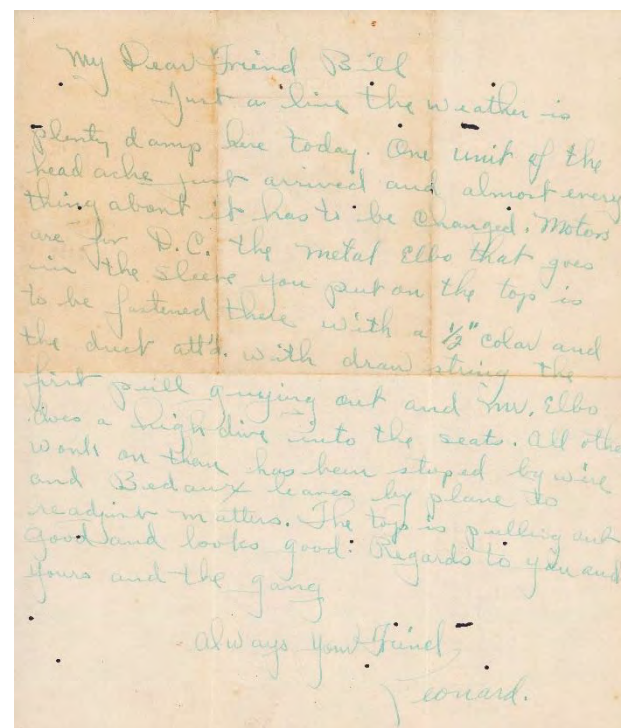 My Dear Friend Bill
Just a line the weather is
plenty damp here today. One unit of the
head ache just arrived and almost every
thing about it has to be changed. Motors
are for D.C. the metal Elbo that goes
in the sleeve you put on the top is
to be fastened there with a 1/2" colar and
the duct att'd. with draw string the
first pull guying out and Mr. Elbo
does a high dive into the seats. All other
work on them has been stoped by wire
and Bedaux leaves by plane to
readjust matters. The top is pulling out
good and looks good. Regards to you and
yours and the gang
Always your Friend
Leonard.